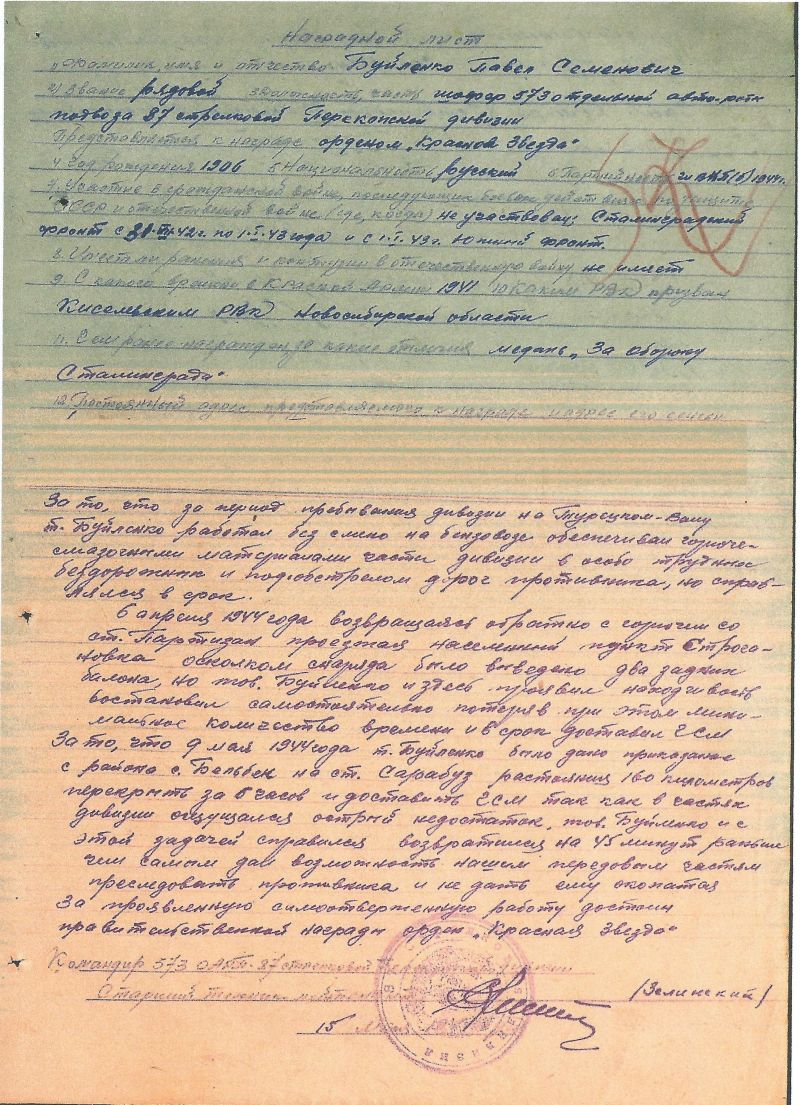 Наградной лист
1) Фамилия, имя и отчество Буйленко Павел Семенович
2) Звание рядовой должность, часть шофер 573 отдельной авто-роты
подвоза 87 стрелковой Перекопской дивизии
Представляется к награде орденом „Красная Звезда“
4 Год рождения 1906 5 Национальность русский 6 Партийность чл ВКП(б) 1944г.
7. Участие в гражданской войне, последующих боевых действиях по защите
СССР и отечественной войне (где, когда) не участвовал; Сталинградский
фронт с 42г. по 1-I-43 года) и с 1-I-43г. Южный фронт.
8. Имеет ли ранения и контузии в отечественную войну не имеет
9. С какого времени в Красной Армии 1941 10 Каким РВК призван
Киселевским РВК Новосибирской области
11. Чем ранее награжден за какие отличия медаль „За оборону
Сталинграда“
12. Постоянный адрес представляемого к награде и адрес его семьи
За то, что за период пребывания дивизии на Турецком-валу
т. Буйленко работал без смено на бензовозе обеспечивал горюче-
смазочными материалами части дивизии в особо трудные
бездорожник и под обстрелом дорог противника, но справ-
лялся в срок.
6 апреля 1944 года возвращаясь обратно с горючем со
ст. Партизан проезжая населенный пункт Строга-
новка осколком снаряда было выведено два задних
балона, но тов. Буйленко и здесь проявил находчивость
востановил самостоятельно потеряв при этом мини-
мальное количество времени и в срок доставил ГСМ
За то, что 9 мая 1944 года т. Буйленко было дано приказание
с района с. Бельбек на ст. Сарабуз растояния 160 километров
перекрыть за 6 часов и доставить ГСМ так как в частях
дивизии ощущался острый недостаток, тов. Буйленко и с
этой задачей справился возвратился на 45 минут раньше
чем самым дал возможность нашим передовым частям
преследовать противника и не дать ему окопатся
За проявленную симоотверженную работу достоин
правительственной награды орден „Красная Звезда“
Командир 573 ОАПт 87 стрелковой дивизии
Старший техник лейтенант (Зелинский)
15 мая